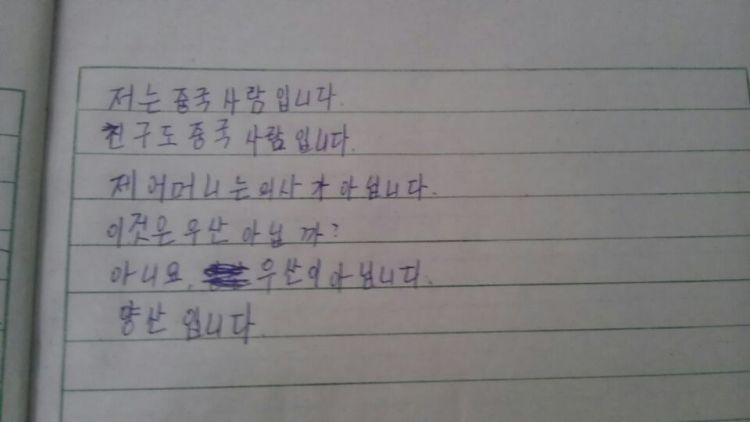 저는 중국 사람 입니다.
친구도 중국 사람 입니다.
제 어머니는 의사가 아닙니다.
이것은 우산 아닙까?
아니요, 우산이 아닙니다.
양산 입니다.